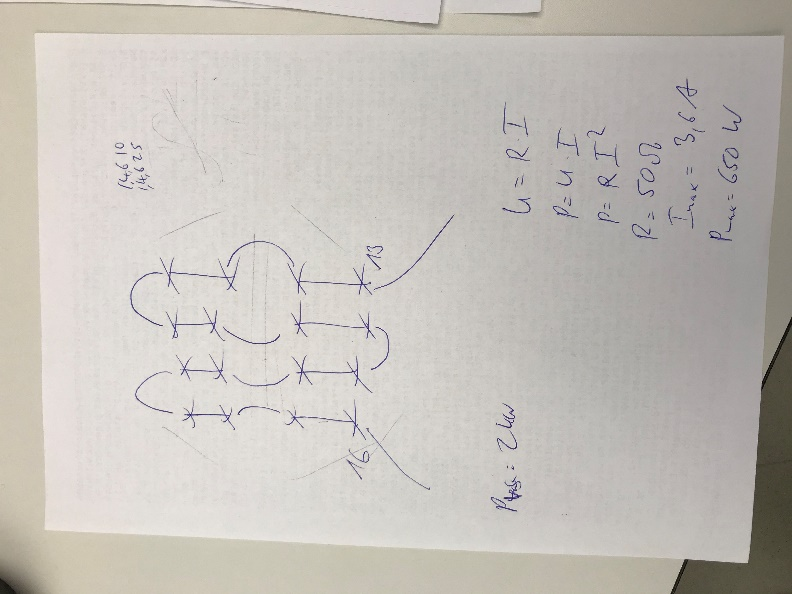 14,610
14,625
13
16
U = R · I
P = U · I
P = R I²
R = 50 Ω
Imax = 3,6 A
Pmax = 650 W
= 2 kW